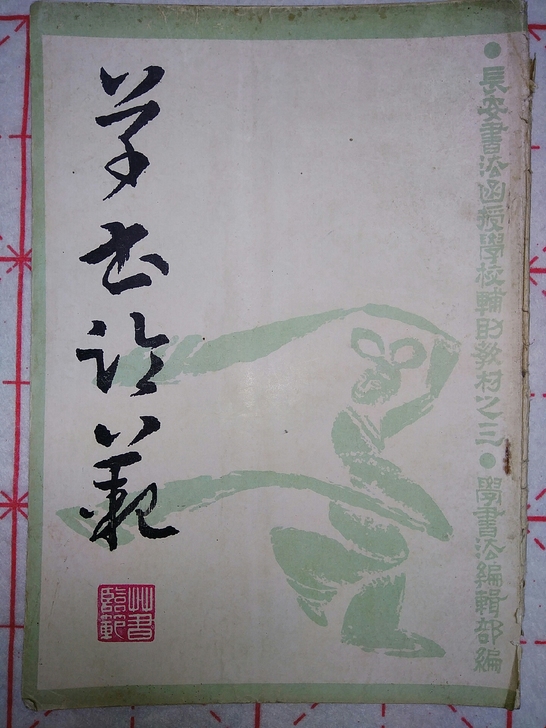 ●長安書法函授學校輔助教材之三●學書法編輯部編
草书临范
艸書
臨範